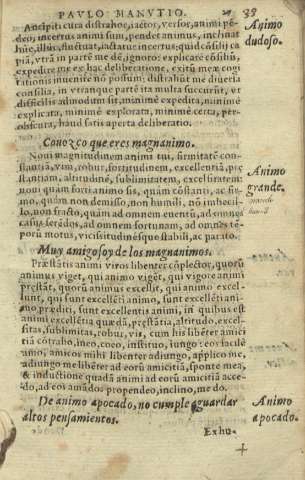 PAVLO MANVTIO.
38
Ancipiti cura distrahor, iactor, versor, animi pẽ-
deo, incertus animi sum, pendet animus, inclinat
huc, illuc, fluctuat, iactatur incertus; quid cõsilij ca
piã, vtrã in partẽ me dẽ, ignoro: explicare cõsiliũ,
expedire me ex hac deliberatione, exitũ meæ cogi
tationis inuenire nõ possum: distrahũt me diuersa
consilia, in vtranque partẽ ita multa succurrũt, et
difficilis admodum sit, minimè expedita, minimè
explicata, minimè explorata, minimè certa, per-
obscura, haud satis aperta deliberatio.
Animo
dudoso.
Conozco que eres magnanimo.
Noui magnitudinem animi tui, firmitatẽ con-
stantiã, vim, robur, fortitudinem, excellentiã, præ
stantiam, altitudinẽ, sublimitatem, excelsitatem:
noui quàm forti animo sis, quàm cõstanti, ac fir-
mo, quàm non demisso, non humili, nõ imbecil-
lo, non fracto, quàm ad omnem euentũ, ad omnes
casus ferẽdos, ad omnem fortunam, ad omnes tẽ-
porũ motus, vicissitudinẽsque stabili, ac parato.
Animo
grande.
Muy amigo soy de los magnanimos.
Præstãtis animi viros libenter cõplector, quorũ
animus viget, qui animo viget, qui vigore animi
præstãt, quorũ animus excellit, qui animo excel-
lunt, qui sunt excellẽti animo, sunt excellẽti ani-
mo præditi, sunt excellentis animi, in quibus est
animi excellẽtia quædã, præstãtia, altitudo, excel-
sitas, sublimitas, robur, vis, cum his libẽter amici
tiã cõtraho, ineo, coeo, instituo, iungo: eos facilè
amo, amicos mihi libenter adiungo, applico me,
adiungo me libẽter ad eorũ amicitiã, sponte mea,
& inductione quadã animi ad eorũ amicitiã acce-
do, ad eos amãdos propendeo, inclino, me do.
De animo apocado, no cumple aguardar
altos pensamientos.
Animo
apocado.
Exhu-